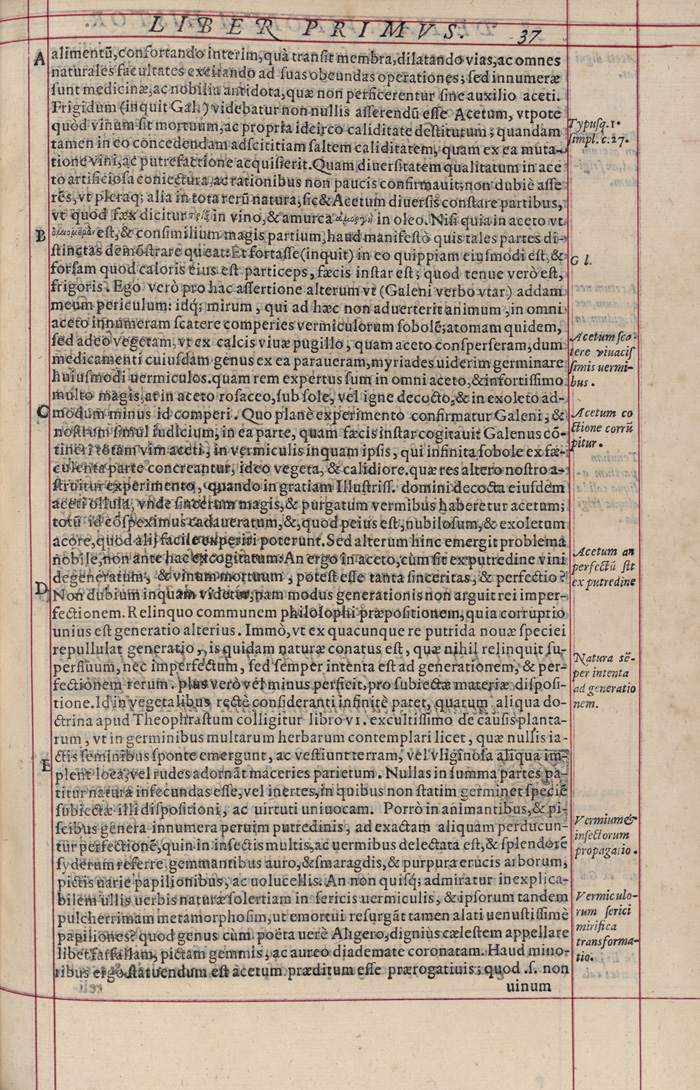 LIBER PRIMVS. 37
A
alimentū, confortando interim, quà transit membra, dilatando vias, ac omnes
naturales facultates excitando ad suas obeundas operationes; sed innumeræ
sunt medicinæ, ac nobilia antidota, quæ non perficerentur sine auxilio aceti.
Frigidum (inquit Gal.) videbatur non nullis asserendū esse Acetum, vtpote
quòd vinum sit mortuum, ac propria idcirco caliditate destitutum; quandam
Typusq. 1.
simpl. c. 27.
tamen in eo concedendam adscititiam saltem caliditatem, quam ex ea muta-
tione vini, ac putrefactione acquisierit. Quam diuersitatem qualitatum in ace
to artificiosa coniectura, ac rationibus non paucis confirmauit; non dubiè asse
rēs, vt pleraq; alia in tota rerū natura, sic & Acetum diuersis constare partibus,
vt quod fæx dicitur in vino, & amurca ἀμοργὴ in oleo. Nisi quia in aceto vt
B
est, & consimilium magis partium, haud manifestò quis tales partes di-
stinctas demōstrare queat: Et fortasse (inquit) in eo quippiam eiusmodi est, &
G l.
forsam quod caloris eius est particeps, fæcis instar est; quod tenue verò est,
frigoris. Ego verò pro hac assertione alterum vt (Galeni verbo vtar) addam
meum periculum: idq; mirum, qui ad hæc non aduerterit animum, in omni
aceto innumeram scatere comperies vermiculorum sobolē; atomam quidem,
sed adeo vegetam, vt ex calcis viuæ pugillo, quam aceto consperseram, dum
Acetum sca
tere viuacis
simis uermi-
bus.
medicamenti cuiusdam genus ex ea paraueram, myriades uiderim germinare
huiusmodi uermiculos. quam rem expertus sum in omni aceto, & infortissimo
multo magis, at in aceto rosaceo, sub sole, vel igne decocto, & in exoleto ad-
C
modum minus id comperi. Quo planè experimento confirmatur Galeni, &
Acetum co
ctione corrū
pitur.
nostrum simul iudicium, in ea parte, quam fæcis instar cogitauit Galenus cō-
tineri totam vim aceti, in vermiculis inquam ipsis, qui infinita sobole ex fæ-
culenta parte concreantur, ideo vegeta, & calidiore. quæ res altero nostro a-
struitur experimento, quando in gratiam Illustriss. domini decocta eiusdem
aceti ollula, vnde sincerum magis, & purgatum vermibus haberetur acetum;
totū id cōspeximus cadaueratum, &, quod peius est, nubilosum, & exoletum
acore, quod alij facile experiri poterunt. Sed alterum hinc emergit problema
nobile, non ante hac excogitatum: An ergo in aceto, cùm sit ex putredine vini
Acetum an
perfectū sit
ex putredine
degeneratum, & vinum mortuum, potest esse tanta sinceritas, & perfectio?
D
Non dubium inquam videtur, nam modus generationis non arguit rei imper-
fectionem. Relinquo communem philosophi præpositionem, quia corruptio
unius est generatio alterius. Immò, vt ex quacunque re putrida nouæ speciei
repullulat generatio, is quidam naturæ conatus est, quæ nihil relinquit su-
perfluum, nec imperfectum, sed semper intenta est ad generationem, & per-
Natura sē-
per intenta
ad generatio
nem.
fectionem rerum. plus verò vel minus perficit, pro subiectæ materiæ disposi-
tione. Id in vegetalibus rectè consideranti infinitè patet, quarum aliqua do-
ctrina apud Theophrastum colligitur libro VI. excultissimo de causis planta-
rum, vt in germinibus multarum herbarum contemplari licet, quæ nullis ia-
ctis seminibus sponte emergunt, ac vestiunt terram, vel vliginosa aliqua im-
E
plent loca, vel rudes adornāt maceries parietum. Nullas in summa partes pa-
titur natura infecundas esse, vel inertes, in quibus non statim germinet speciē
subiectæ illi dispositioni, ac uirtuti uniuocam. Porrò in animantibus, & pi-
scibus genera innumera peruim putredinis, ad exactam aliquam perducun-
Vermium &
insectorum
propagatio.
tur perfectionē, quin in insectis multis, ac uermibus delectata est, & splendorē
syderum referre, gemmantibus auro, & smaragdis, & purpura erucis arborum,
pictis uarie papilionibus, ac uolucellis. An non quisq; admiratur inexplica-
bilem ullis uerbis naturæ solertiam in sericis uermiculis, & ipsorum tandem
Vermiculo-
rum serici
mirifica
transforma-
tio.
pulcherrimam metamorphosim, ut emortui resurgāt tamen alati uenustissimè
papiliones? quod genus cùm poëta uerè Aligero, digniùs cælestem appellare
libet farfallam, pictam gemmis, ac aureo diademate coronatam. Haud mino-
ribus ergo statuendum est acetum præditum esse prærogatiuis; quod .s. non
uinum